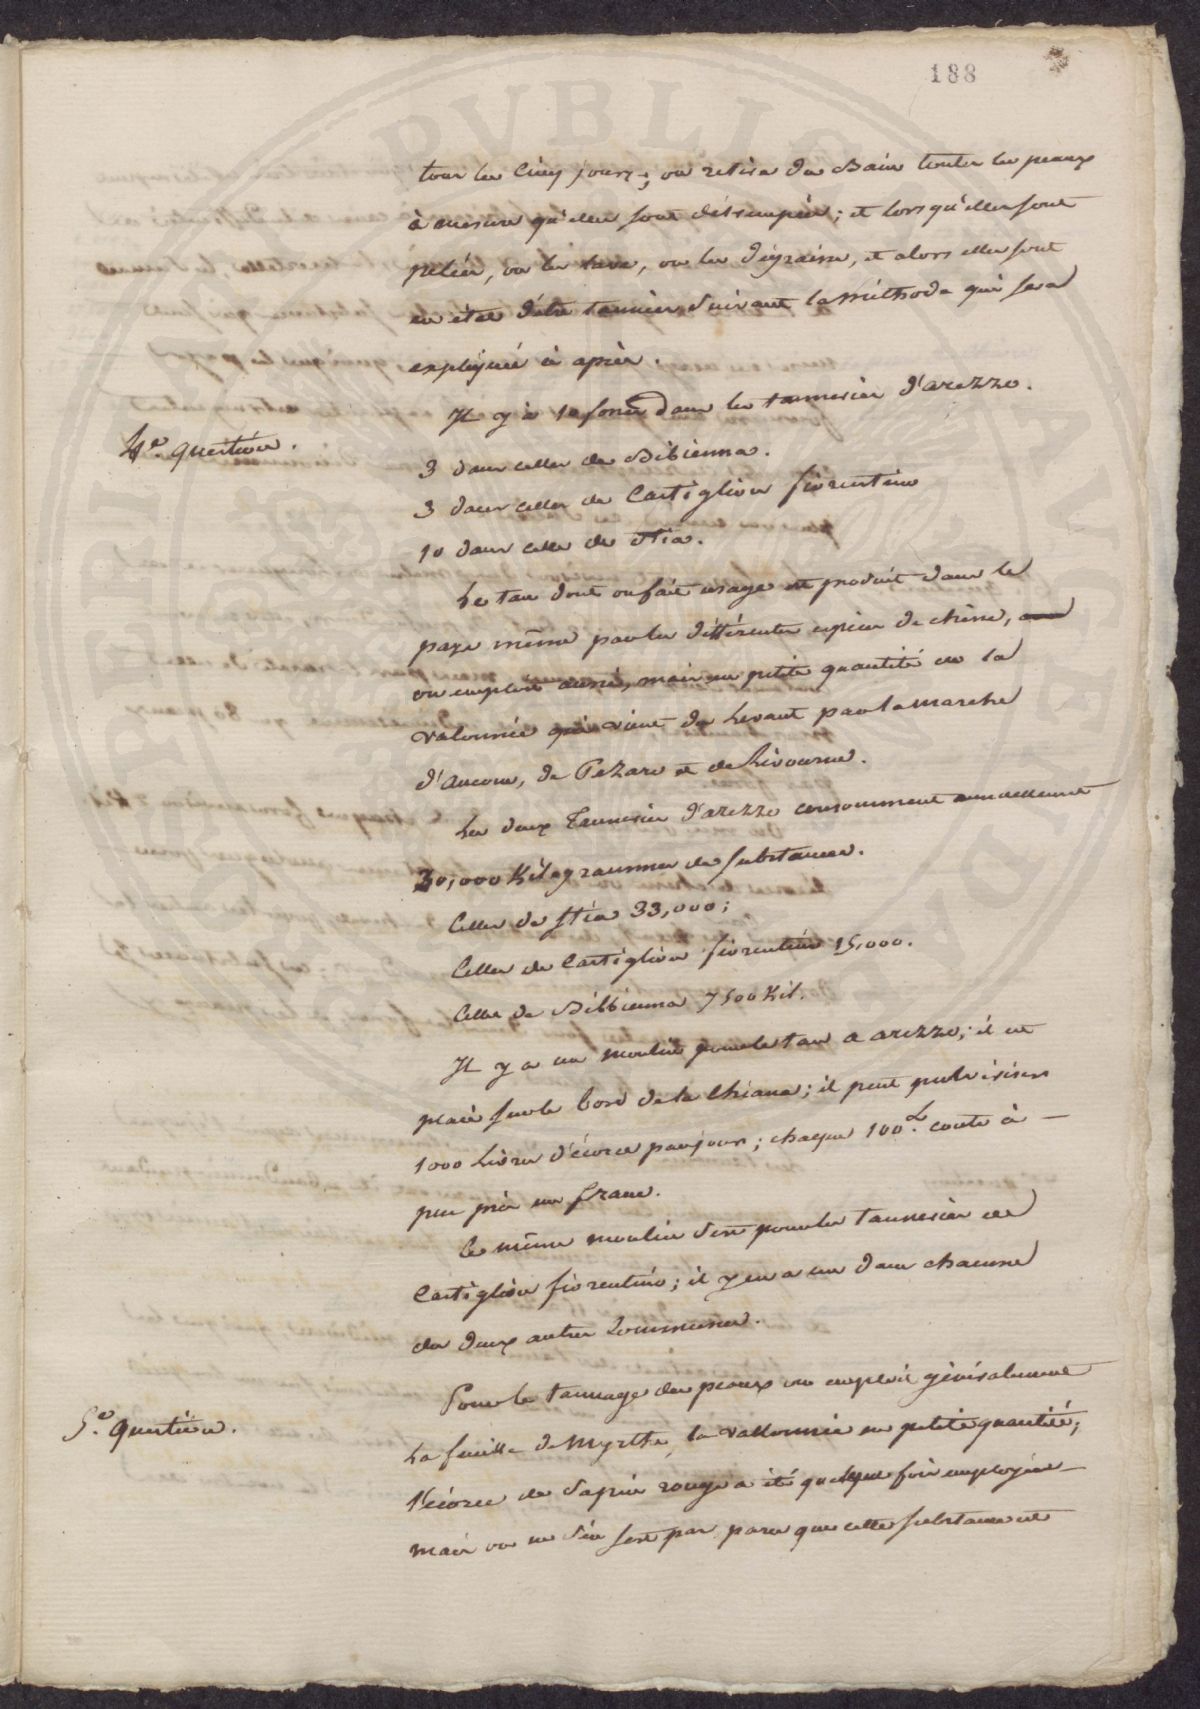 188
tous les cinq jours; on retire du Bain toutes les peaux
à mesure qu'elles sont détrempées; et lorsqu'elles sont
pelées, on les lave, on les dégraisse, et alors elles sont
en état d'être tannées suivant la méthode qui sera
expliquée ci après.
4e. question.
Il y a 10 fosses dans les tanneries d'arezzo.
3 dans celles de Bibienna.
3 dans celles de Castiglion fiorentino
10 dans celles de Stia.
Le tan dont on fait usage est produit dans le
pays même par les différentes espèces de chêne,
on emploie aussi, mais en petite quantité de la
valonnée qui vient du Levant par la marche
d'ancone, de Pezaro et de Livourne.
Les deux Tanneries d'arezzo consomment annuellement
30,000 Kilogrammes de substances.
Celles de Stia 33,000;
Celles de Castiglion fiorentino 15,000.
Celles de Bibbienna 7500 Kil.
Il y a un moulin pour le tan a arezzo; il est
placé sur le bord de la Chiana; il peut pulvériser
1000 Livres d'écorce par jour; chaque 100 L. coute à
peu près un franc.
Le même moulin sert pour les tanneries de
Castiglion fiorentino; il y en a un dans chacune
des deux autres Communes.
5e. question.
Pour le tannage des peaux on emploie généralement
La feuille de Myrthe, la vallonnée en petite quantité;
l'écorce de sapin rouge a été quelque fois employée
mais on ne s'en sert pas parce que cette substance est